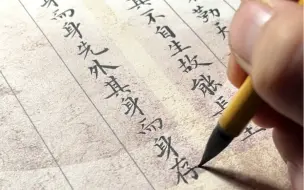 勤天
其不自生故能長
身而身先外其身而身存